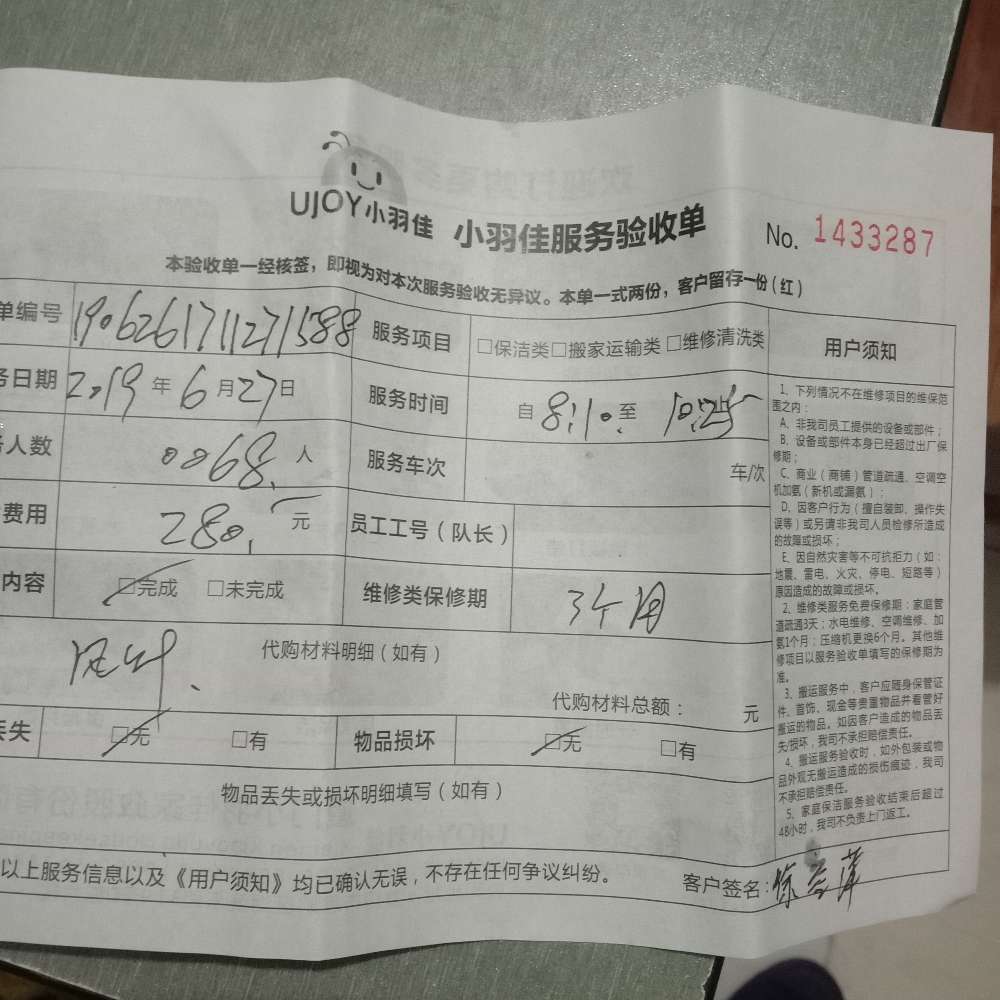 UJOY小羽佳 小羽佳服务验收单 No. 1433287
本验收单一经核签，即视为对本次服务验收无异议。本单一式两份，客户留存一份（红）
单编号 1906261711271588 服务项目 □保洁类□搬家运输类 □维修清洗类 用户须知
务日期 2019 年 6 月 27 日 服务时间 自 8:10 至 10:25
人数 0068 人 服务车次 车/次
费用 280 元 员工工号（队长）
内容 □完成 □未完成 维修类保修期 3个月
代购材料明细（如有）
代购材料总额： 元
丢失 □无 □有 物品损坏 □无 □有
物品丢失或损坏明细填写（如有）
以上服务信息以及《用户须知》均已确认无误，不存在任何争议纠纷。 客户签名：
1、下列情况不在维修项目的维保范
围之内：
A、非我司员工提供的设备或部件；
B、设备或部件本身已经超过出厂保
修期；
C、商业（商铺）管道疏通、空调空
机加氨（新机或漏氨）；
D、因客户行为（擅自装卸、操作失
误等）或另请非我司人员检修所造成
的故障或损坏；
E、因自然灾害等不可抗拒力（如：
地震、雷电、火灾、停电、短路等）
原因造成的故障或损坏。
2、维修类服务免费保修期：家庭管
道疏通3天；水电维修、空调维修、加
氨1个月；压缩机更换6个月。其他维
修项目以服务验收单填写的保修期为
准。
3、搬运服务中，客户应随身保管证
件、首饰、现金等贵重物品并看管好
搬运的物品。如因客户造成的物品丢
失/损坏，我司不承担赔偿责任。
4、搬运服务验收时，如外包装或物
品外观无搬运造成的损伤痕迹，我司
不承担赔偿责任。
5、家庭保洁服务验收结束后超过
48小时，我司不负责上门返工。